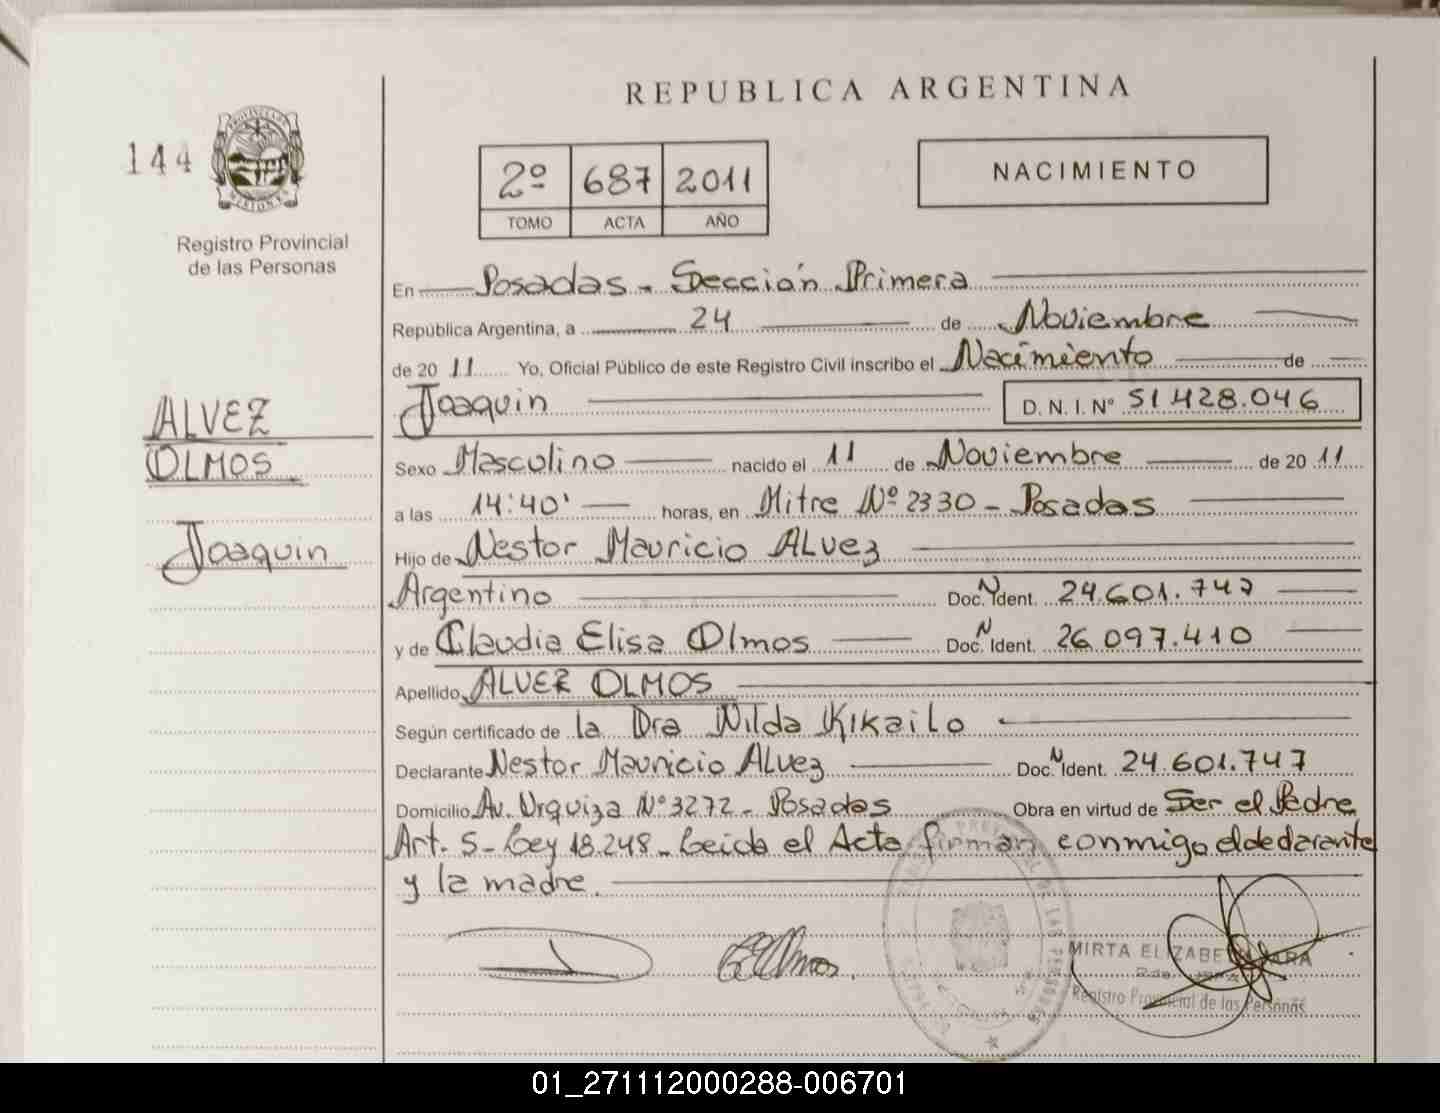 REPUBLICA ARGENTINA
144
2º 687 2011
TOMO ACTA AÑO
NACIMIENTO
Registro Provincial
de las Personas
ALVEZ
OLMOS
Joaquin
En Posadas - Sección Primera
República Argentina, a 24 de Noviembre
de 20 11 Yo, Oficial Público de este Registro Civil inscribo el Nacimiento de
Joaquin D. N. I. Nº 51.428.046
Sexo Masculino nacido el 11 de Noviembre de 20 11
a las 14:40' horas, en Mitre Nº 2330 - Posadas
Hijo de Nestor Mauricio ALVEZ
Argentino Doc. N Ident. 24.601.747
y de Claudia Elisa Olmos Doc. N Ident. 26.097.410
Apellido ALVEZ OLMOS
Según certificado de la Dra Nilda Kikailo
Declarante Nestor Mauricio ALVEZ Doc. N Ident. 24.601.747
Domicilio Av. Urquiza Nº 3272 - Posadas Obra en virtud de Ser el Padre
Art. 5 - Ley 18.248 - Leida el Acta firman conmigo el declarante
y la madre.
Olmos
MIRTA
Registro Provincial de las Personas
01_271112000288-006701